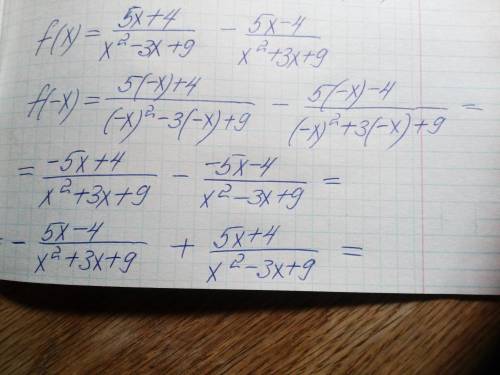 f(x) = (5x+4)/(x²-3x+9) - (5x-4)/(x²+3x+9)
f(-x) = (5(-x)+4)/((-x)²-3(-x)+9) - (5(-x)-4)/((-x)²+3(-x)+9) =
= (-5x+4)/(x²+3x+9) - (-5x-4)/(x²-3x+9) =
- (5x-4)/(x²+3x+9) + (5x+4)/(x²-3x+9) =